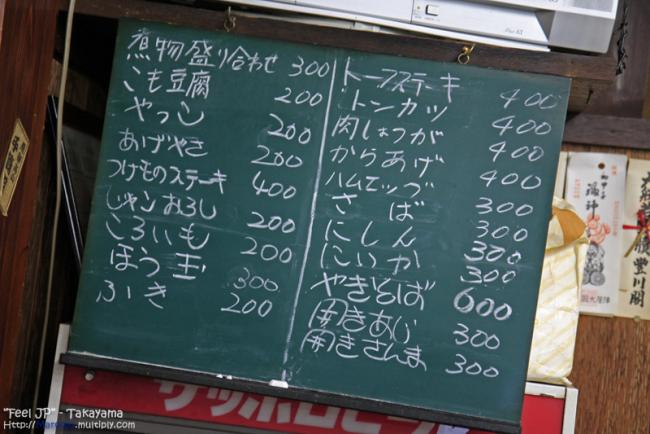 煮物盛り合わせ 300
こも豆腐 200
やっこ 200
あげやき 200
つけものステーキ 400
じゃこおろし 200
ころいも 200
ほう玉 300
ふき 200
トーフステーキ 400
トンカツ 400
肉しょうが 400
からあげ 400
ハムエッグ 300
さば 300
にしん 300
にいか 300
やきそば 600
開きあじ 300
開きさんま 300
サッポロビー
豊川閣
"Feel JP" - Takayama
multiply.com